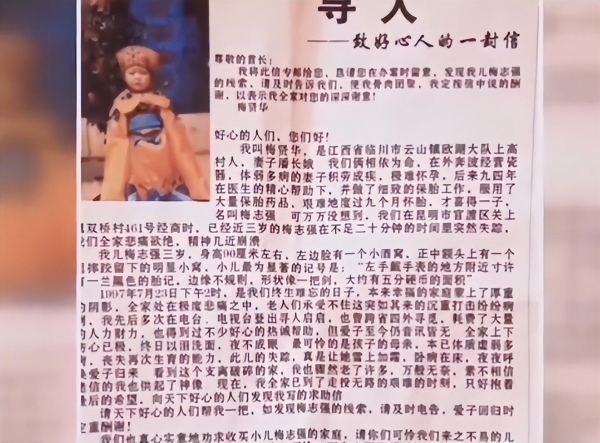 寻人
——致好心人的一封信
尊敬的首长：
我将此信专邮给您，恳请您在办案时留意，发现我儿梅志强
的线索，请及时告诉我们，使我骨肉团聚，我定按信中说的酬
谢，以表示我全家对您的深深谢意！
梅贤华
好心的人们，您们好！
我叫梅贤华，是江西省临川市云山镇欧湖大队上高
村人，妻子潘长娥 我们俩相依为命，在外奔波经营瓷
器，体弱多病的妻子积劳成疾，极难怀孕，后来九四年
在医生的精心帮助下，并做了细致的保胎工作，服用了
大量保胎药品，艰难地度过九个月怀胎，才喜得一子，
名叫梅志强 可万万没想到，我们在昆明市官渡区关上
双桥村461号经商时，已经近三岁的梅志强在不足二十分钟的时间里突然失踪，
们全家悲痛欲绝，精神几近崩溃
我儿梅志强三岁，身高90厘米左右，左边脸有一个小酒窝，正中额头上有一个
摔跤留下的明显小窝，小儿最为显著的记号是：“左手戴手表的地方附近寸许
一兰黑色的胎记，边缘不规则，形状像一把剑，大约有五分硬币的面积”
1997年7月23日下午2时，是我们终生难忘的日子，本来幸福的家庭蒙上了厚重
的阴影，全家处在极度悲痛之中，老人们承受不住这突如其来的沉重打击纷纷病
倒，我先后多次在电台、电视台登出寻人启启，也曾跨省四外寻觅，耗费了大量
的人力财力，也得到过不少好心的热诚帮助，但爱子至今仍音讯皆无 全家上下
伤心已极，终日以泪洗面，夜不成眠 最可怜的是孩子的母亲，本已体质虚弱多
，丧失再次生育的能力，此儿的失踪，真是让她雪上加霜，卧病在床，夜夜呼
爱子归来 看到这个支离破碎的家，我也骤然老了许多，万般无奈，素不相信
迷信的我也供起了神像 现在，我全家已到了走投无路的艰难的时刻，只好抱着
最后的希望，向天下好心的人们发现我写的求助信
请天下好心的人们帮我一把，如发现梅志强的线索，请及时电告，爱子回归时
定重酬谢！
我们也真心实意地功求收买小儿梅志强的家庭，请你们可怜我们来之不易的儿